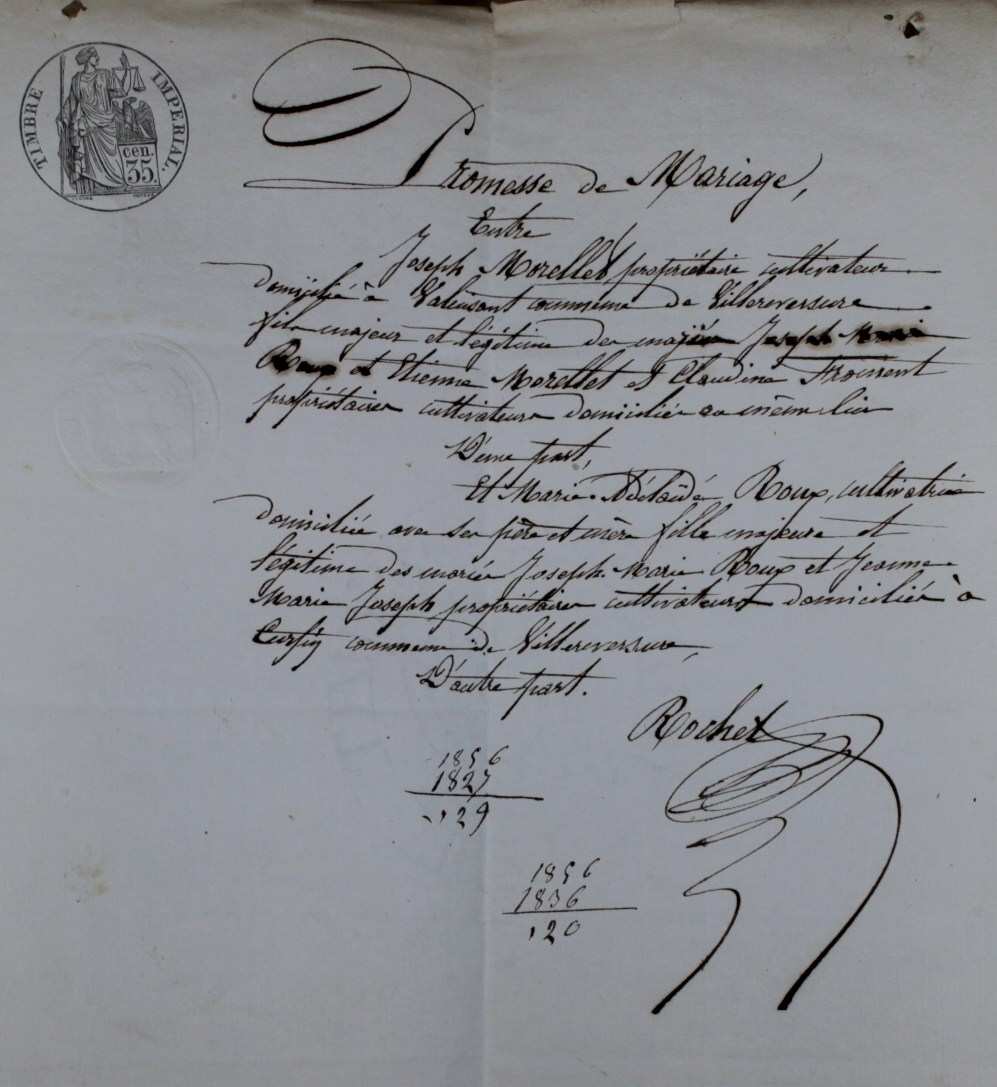 TIMBRE IMPERIAL.
cen.
35.
Promesse de Mariage,
Entre
Joseph Morellet propriétaire cultivateur
domicilié à commune de Villereversure
fils majeur et légitime des Joseph Marie
Roux et Etienne Morellet et Claudine Froment
propriétaires cultivateurs domiciliés au même lieu
D'une part,
Et Marie-Adélaïde Roux, cultivatrice
domiciliée avec ses père et mère fille majeure et
légitime des mariés Joseph-Marie Roux et Jeanne
Marie Joseph propriétaires cultivateurs domiciliés à
commune de Villereversure,
D'autre part.
Rochet
1856
1827
29
1856
1836
20